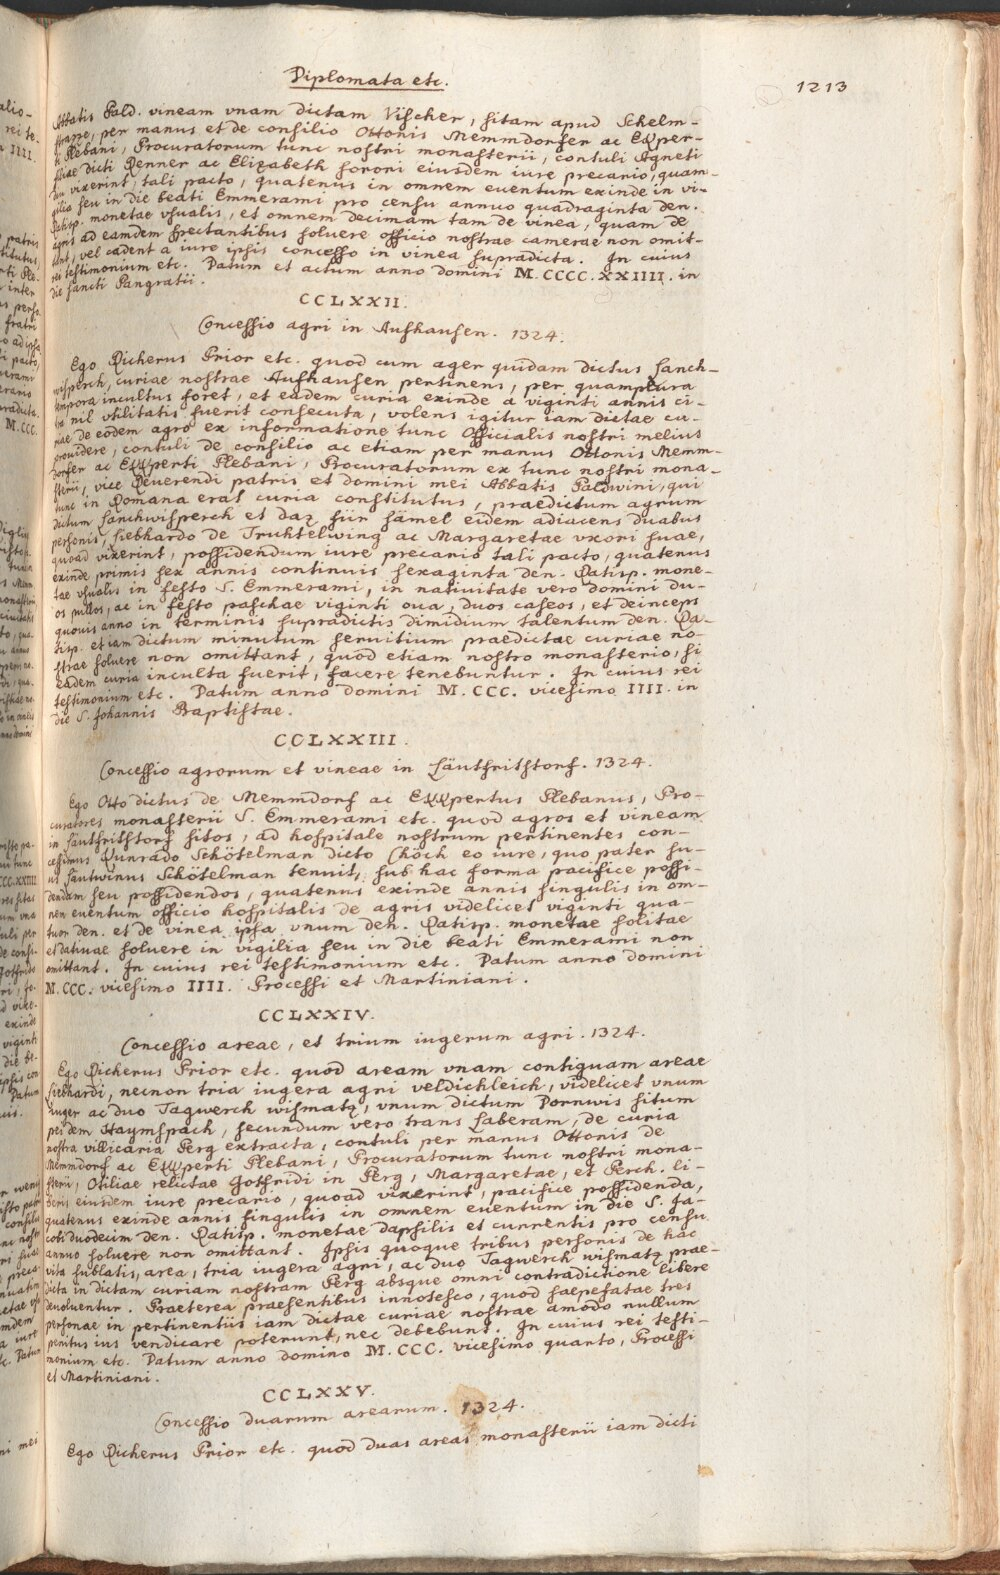 Diplomata etc.
1213
Abbatis Bald. vineam vnam dictam Vischer, sitam apud Schelm-
strasse, per manus et de consilio Ottonis Memmdorfer ac Ekkper-
ti Plebani, Procuratorum tunc nostri monasterii, contuli Agneti
filiae dicti Renner ac Elizabeth sorori eiusdem iure precario, quam-
diu vixerint, tali pacto, quatenus in omnem euentum exinde in vi-
gilia seu in die beati Emmerami pro censu annuo quadraginta den.
Ratisp. monetae vsualis, et omnem decimam tam de vinea, quam de
agris ad eamdem spectantibus soluere officio nostrae camerae non omit-
tant, vel cadent a iure ipsis concesso in vinea supradicta. In cuius
rei testimonium etc. Datum et actum anno domini M.CCCC.XXIIII. in
die sancti Pangratii.
CCLXXII.
Concessio agri in Aufhausen. 1324.
Ego Richerus Prior etc. quod cum ager quidam dictus Lanck-
wisperch, curiae nostrae Aufhausen pertinens, per quamplura
tempora incultus foret, et eadem curia exinde a viginti annis ci-
tra nil vtilitatis fuerit consecuta, volens igitur iam dictae cu-
riae de eodem agro ex informatione tunc Officialis nostri melius
prouidere, contuli de consilio ac etiam per manus Ottonis Memm-
dorfer ac Ekkperti Plebani, Procuratorum ex tunc nostri mona-
sterii, vice Reuerendi patris et domini mei Abbatis Baldwini, qui
tunc in Romana erat curia constitutus, praedictum agrum
dictum Lanckwisperch et daz für sämel eidem adiacens duabus
personis, Liebhardo de Truhtelwing ac Margaretae vxori suae,
quoad vixerint, possidendum iure precario tali pacto, quatenus
exinde primis sex annis continuis sexaginta den. Ratisp. mone-
tae vsualis in festo S. Emmerami, in natiuitate vero domini du-
os pullos, ac in festo paschae viginti oua, duos caseos, et deinceps
quouis anno in terminis supradictis dimidium talentum den. Ra-
tisp. et iam dictum minutum seruitium praedictae curiae no-
strae soluere non omittant, quod etiam nostro monasterio, si
eadem curia inculta fuerit, facere tenebuntur. In cuius rei
testimonium etc. Datum anno domini M.CCC. vicesimo IIII. in
die S. Johannis Baptistae.
CCLXXIII.
Concessio agrorum et vineae in Läutfritstorf. 1324.
Ego Otto dictus de Memmdorf ac Ekkpertus Plebanus, Pro-
curatores monasterii S. Emmerami etc. quod agros et vineam
in Läutfritstorf sitos, ad hospitale nostrum pertinentes con-
cessimus Kunrado Schötelman dicto Chöch eo iure, quo pater su-
us Lautwinus Schötelman tenuit, sub hac forma pacifice possi-
dendam seu possidendos, quatenus exinde annis singulis in om-
nem euentum officio hospitalis de agris videlicet viginti qua-
tuor den. et de vinea ipsa vnum den. Ratisp. monetae solitae
et datiuae soluere in vigilia seu in die beati Emmerami non
omittant. In cuius rei testimonium etc. Datum anno domini
M.CCC. vicesimo IIII. Processi et Martiniani.
CCLXXIV.
Concessio areae, et trium iugerum agri. 1324.
Ego Richerus Prior etc. quod aream vnam contiguam areae
Liebhardi, necnon tria iugera agri veldichleich, videlicet vnum
iuger ac duo Tagwerch wismatz, vnum dictum Dornwis situm
pei dem Haymspach, secundum vero trans Laberam, de curia
nostra villicaria Perg extracta, contuli per manus Ottonis de
Memmdorf ac Ekkperti Plebani, Procuratorum tunc nostri mona-
sterii, Otiliae relictae Gotfridi in Perg, Margaretae, et Perch. li-
beris eiusdem iure precario, quoad vixerint, pacifice possidenda,
quatenus exinde annis singulis in omnem euentum in die S. Ja-
cobi duodecim den. Ratisp. monetae dapsilis et currentis pro censu
annuo soluere non omittant. Ipsis quoque tribus personis de hac
vita sublatis, area, tria iugera agri, ac duo Tagwerch wismatz prae-
dicta in dictam curiam nostram Perg absque omni contradictione libere
deuoluentur. Praeterea praesentibus innotesco, quod saepefatae tres
personae in pertinentiis iam dictae curiae nostrae amodo nullum
penitus ius vendicare poterunt, nec debebunt. In cuius rei testi-
monium etc. Datum anno domino M.CCC. vicesimo quanto, Processi
et Martiniani.
CCLXXV.
Concessio duarum arearum. 1324.
Ego Richerus Prior etc. quod duas areas monasterii iam dicti